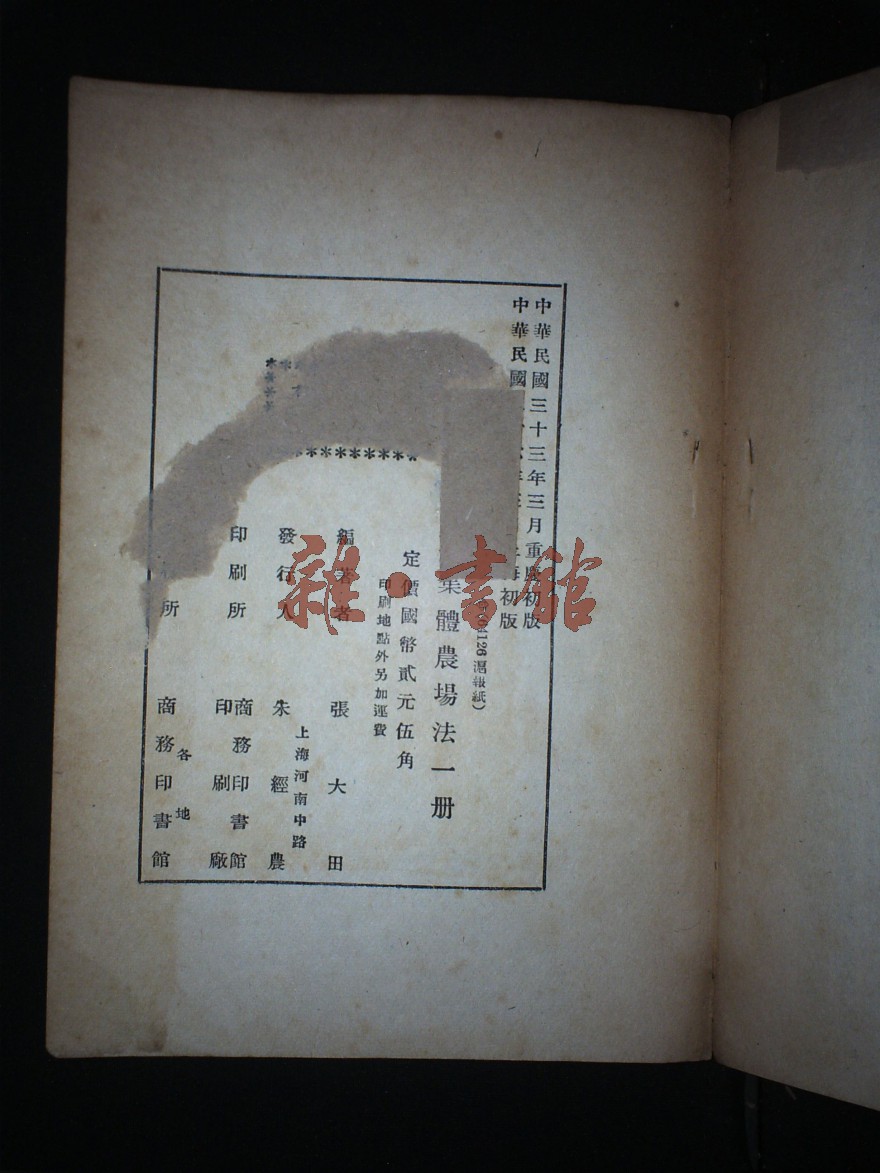 中華民國三十三年三月重慶初版
中華民國 年 海初版
126滬報紙)
集體農場法一册
定價國幣貳元伍角
印刷地點外另加運費
編著者 張大田
上海河南中路
發行人 朱經農
印刷所 商務印書館
印刷廠
各地
所 商務印書館
雜·書館